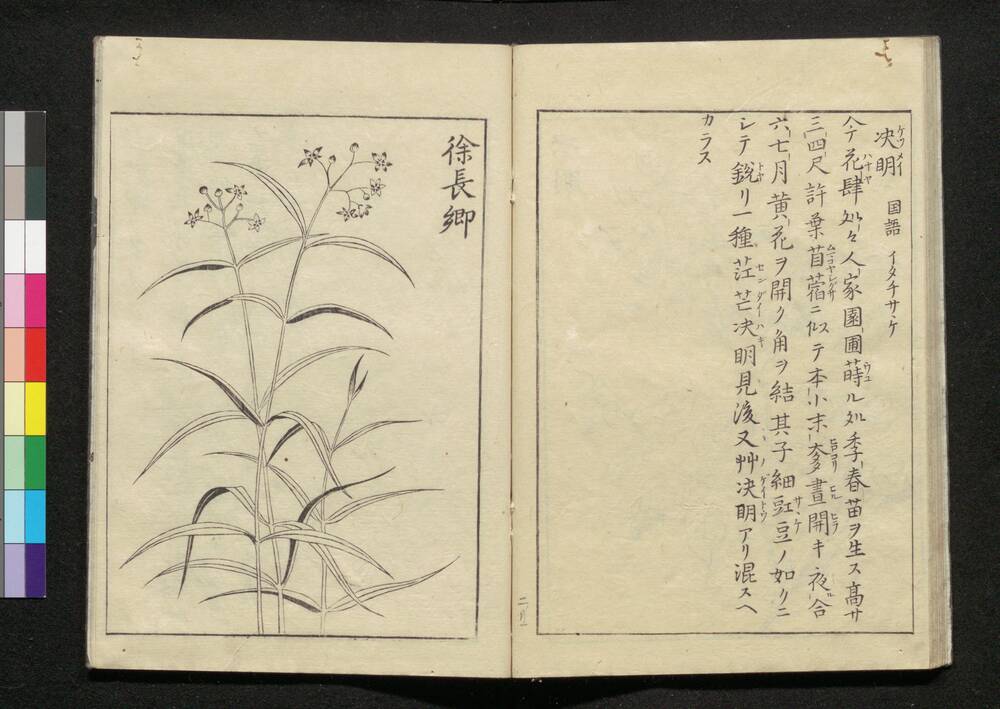 決明 国語 イタチサヽケ
今花肆処々人家園圃蒔ル処季春苗ヲ生ス高サ
三四尺許葉苜蓿ニ似テ本小末奓昼開キ夜合
六七月黄花ヲ開ク角ヲ結其子細豇豆ノ如クニ
シテ鋭リ一種茳芒决明見後又艸决明アリ混スヘ
カラス
徐長卿